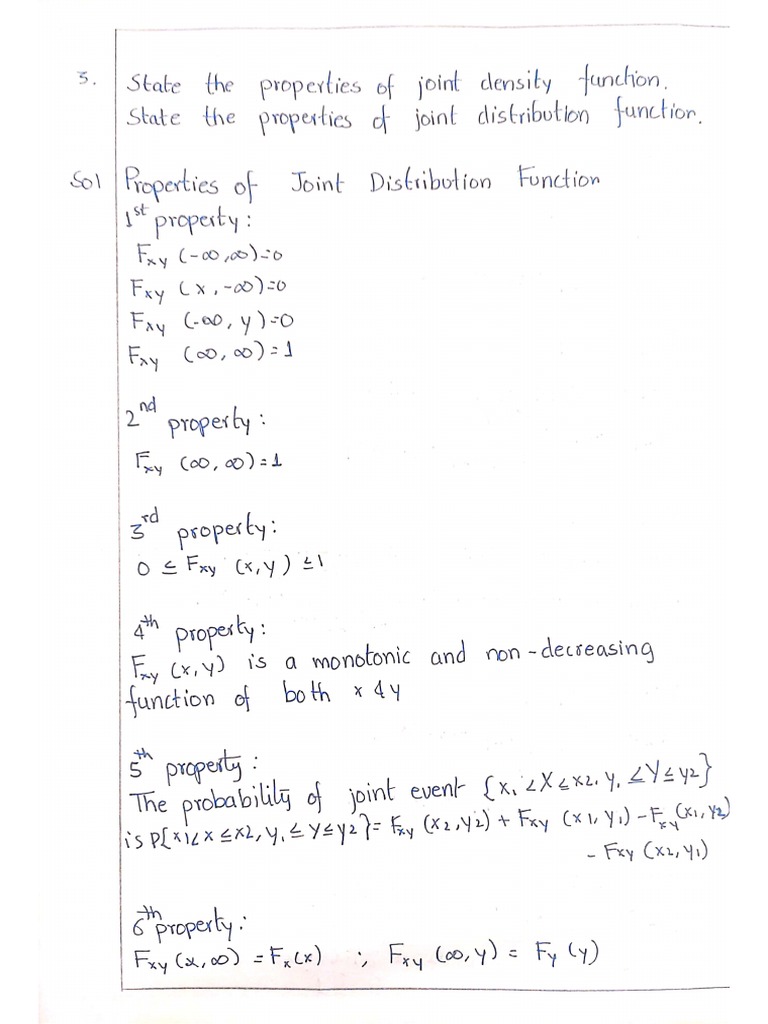 3. State the properties of joint density function.
State the properties of joint distribution function.
Sol Properties of Joint Distribution Function
1st property:
Fxy (-∞,∞)=0
Fxy (x,-∞)=0
Fxy (-∞, y)=0
Fxy (∞, ∞)=1
2nd property:
Fxy (∞, ∞)=1
3rd property:
0 ≤ Fxy (x,y) ≤1
4th property:
Fxy (x,y) is a monotonic and non-decreasing
function of both x & y
5th property:
The probability of joint event {x1<X≤x2, y1≤Y≤y2}
is P{x1<x≤x2, y1≤y≤y2}= Fxy (x2,y2) + Fxy (x1,y1) - Fxy (x1,y2)
- Fxy (x2,y1)
6th property:
Fxy (x,∞) = Fx(x) ; Fxy (∞,y) = Fy (y)